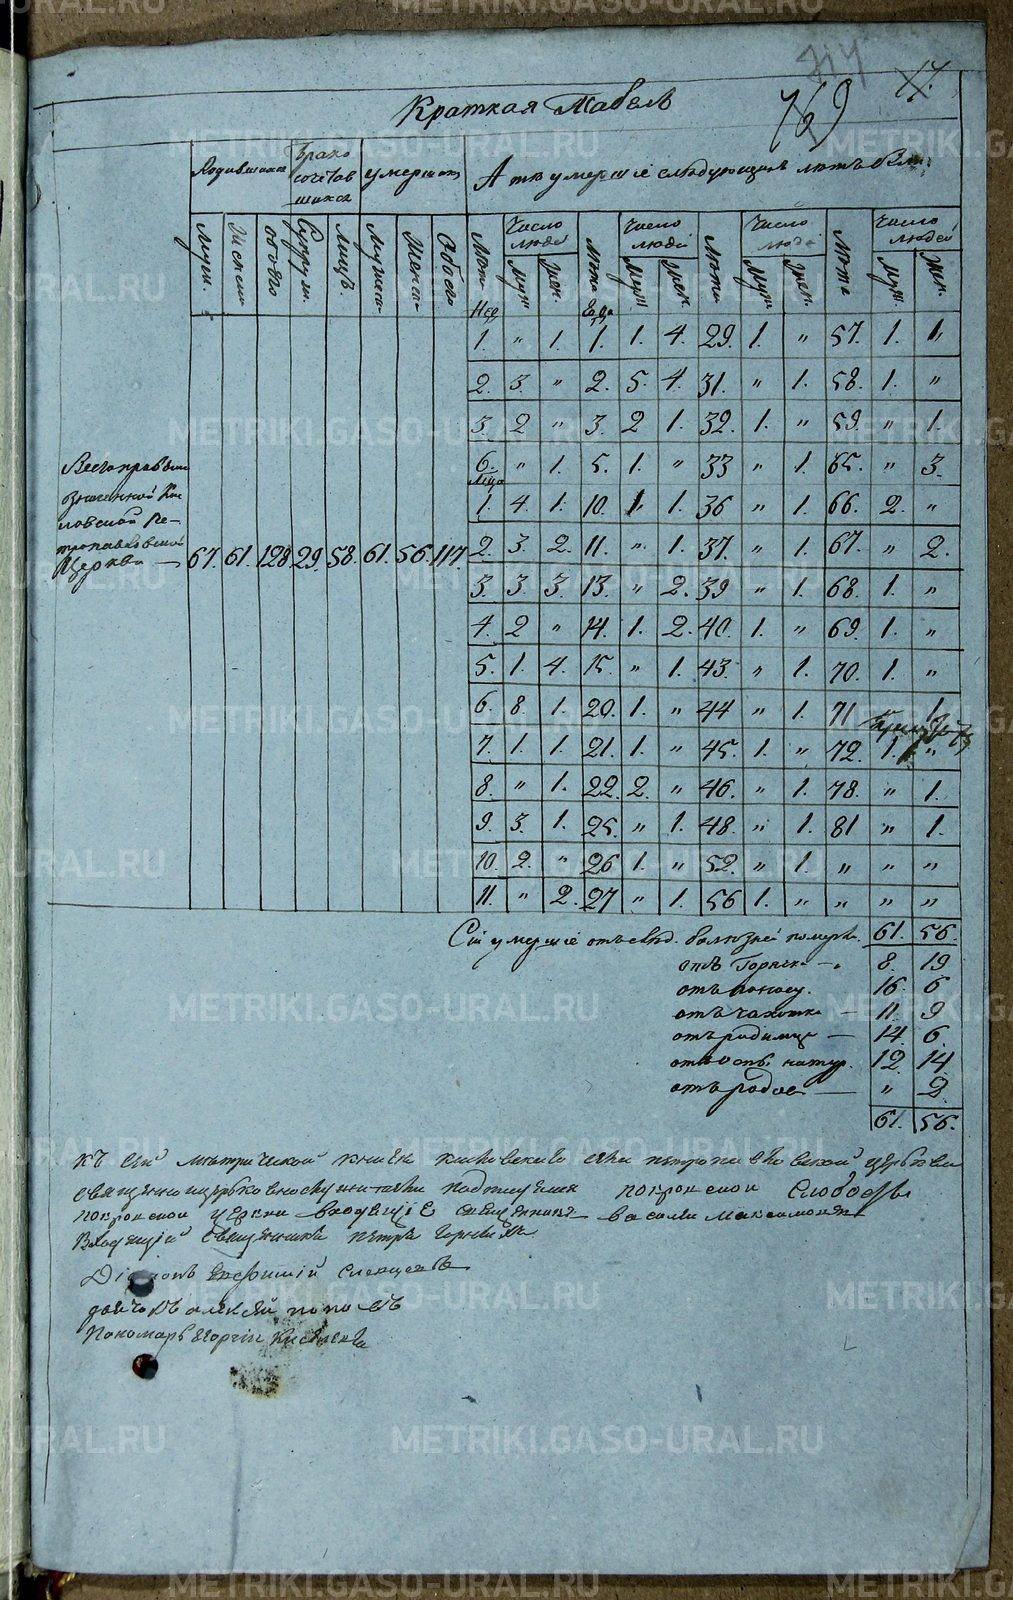 714
769
17.
Краткая Табель
Родившихся
Брако сочетав шихся
умерших
А те умершие следующих летъ были
Муж.
Женска
обоего
Супруж.
лицъ.
Мужеска
Женска
Обоего
Лета
Число людей
Муж
Жен.
Лета
Число людей
Муж
Жен.
Лета
Число людей
Муж
Жен.
Лета
Число людей
Муж
Жен.
Нед
Года
1. " 1. 1. 1. 4. 29. 1. " 57. 1. 1.
2. 3. " 2. 5. 4. 31. " 1. 58. 1. "
3. 2 " 3. 2 1. 32. 1. " 59. " 1.
6. " 1. 5. 1. " 33 " 1. 65. " 3.
Мца
1. 4. 1. 10. 1. 1. 36 " 1. 66. 2. "
2. 3. 2. 11. " 1. 37. " 1. 67. " 2.
3. 3. 3. 13. " 2. 39 " 1. 68. 1. "
4. 2 " 14. 1. 2. 40. 1. " 69. 1. "
5. 1. 4. 15. " 1. 43. " 1. 70. 1. "
6. 8. 1. 20. 1. " 44 " 1. 71 1.
7. 1. 1. 21. 1. " 45. 1. " 72. 1. "
8. " 1. 22. 2. " 46. " 1. 78. " 1.
9. 3. 1. 25. " 1. 48. " 1. 81 " 1.
10. 2. " 26 1. " 52. " 1. " " "
11. " 2. 27 " 1. 56 1. " " " "
Петропавловской
Церкви — 67. 61. 128 29. 58. 61. 56. 117
Сіи умершіе отъ болезней померли. 61. 56.
отъ Горячки — 8. 19
отъ поносу. 16. 6
отъ чахотки — 11. 9
отъ родимца — 14. 6.
отъ оспы натур. 12. 14
отъ родов — " 2.
61. 56.
къ сей метрической книге села петропавловской церкви
священно церковнослужители покровской Слободы
покровской церкви священникъ василий
священникъ петръ
Діаконъ
дьячокъ алексей поповъ
Пономарь георгій
METRIKI.GASO-URAL.RU